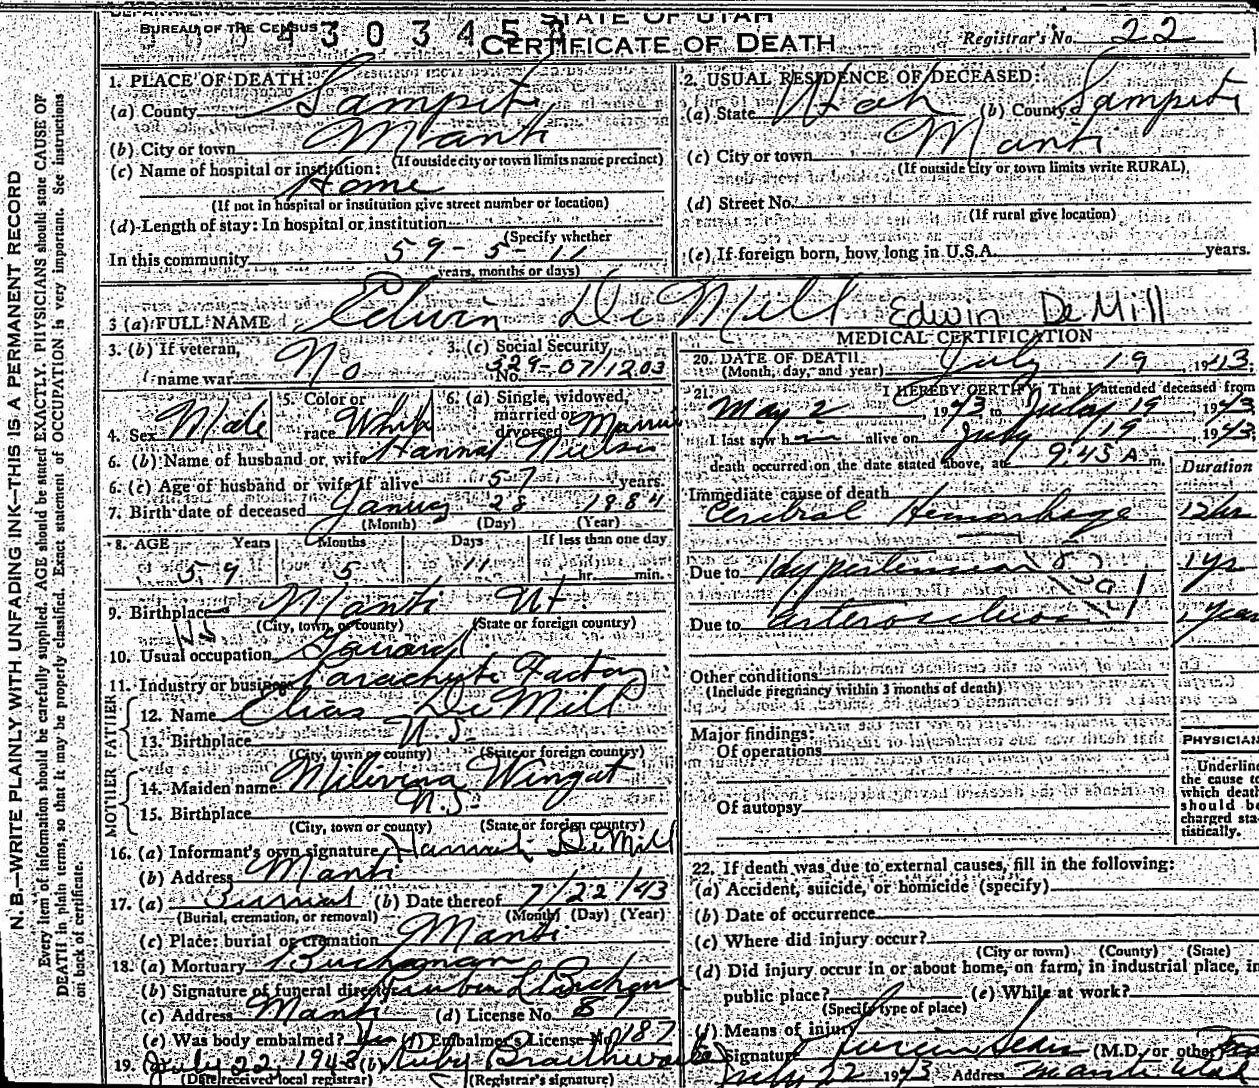 STATE OF UTAH
BUREAU OF THE CENSUS 303458 CERTIFICATE OF DEATH Registrar's No. 22
N. B.—WRITE PLAINLY WITH UNFADING INK—THIS IS A PERMANENT RECORD
Every item of information should be carefully supplied. AGE should be stated EXACTLY. PHYSICIANS should state CAUSE OF
DEATH in plain terms, so that it may be properly classified. Exact statement of OCCUPATION is very important. See instructions
on back of certificate.
1. PLACE OF DEATH:
(a) County Sanpete
(b) City or town Manti
(If outside city or town limits name precinct)
(c) Name of hospital or institution:
Home
(If not in hospital or institution give street number or location)
(d) Length of stay: In hospital or institution
(Specify whether
In this community 59-5-11
years, months or days)
2. USUAL RESIDENCE OF DECEASED:
(a) State Utah (b) County Sanpete
(c) City or town Manti
(If outside city or town limits write RURAL)
(d) Street No.
(If rural give location)
(e) If foreign born, how long in U.S.A. years.
3 (a) FULL NAME Edwin De Mill Edwin DeMill
3. (b) If veteran, name war No
3. (c) Social Security No. 529-07/1203
4. Sex Male
5. Color or race White
6. (a) Single, widowed, married or divorced
6. (b) Name of husband or wife Hannah
6. (c) Age of husband or wife if alive 57 years.
7. Birth date of deceased January 28 1884
(Month) (Day) (Year)
8. AGE Years Months Days If less than one day
59 5 11 hr. min.
9. Birthplace Manti Ut.
(City, town, or county) (State or foreign country)
10. Usual occupation
11. Industry or business Parachute Factory
FATHER
12. Name Elias DeMill
13. Birthplace
(City, town or county) (State or foreign country)
MOTHER
14. Maiden name
15. Birthplace
(City, town or county) (State or foreign country)
16. (a) Informant's own signature Hannah DeMill
(b) Address Manti
17. (a) Burial (b) Date thereof 7/22/43
(Burial, cremation, or removal) (Month) (Day) (Year)
(c) Place: burial or cremation Manti
18. (a) Mortuary Buchanan
(b) Signature of funeral director
(c) Address Manti (d) License No. 87
(e) Was body embalmed? Yes (f) Embalmer's License No. 187
19. July 22, 1943 (b) Ruby Braithwaite
(Date received local registrar) (Registrar's signature)
MEDICAL CERTIFICATION
20. DATE OF DEATH July 19, 1943
(Month, day, and year)
21. I HEREBY CERTIFY, That I attended deceased from
May 2 1943 to July 19, 1943
I last saw him alive on July 19, 1943
death occurred on the date stated above, at 9:45 A m.
Duration
Immediate cause of death
Cerebral Hemorrhage 12 hr
Due to Hypertension 1 yr
Due to arterosclerosis
Other conditions
(Include pregnancy within 3 months of death)
Major findings:
Of operations
Of autopsy
PHYSICIAN
Underline
the cause to
which death
should be
charged sta-
tistically.
22. If death was due to external causes, fill in the following:
(a) Accident, suicide, or homicide (specify)
(b) Date of occurrence
(c) Where did injury occur?
(City or town) (County) (State)
(d) Did injury occur in or about home, on farm, in industrial place, in
public place? (e) While at work?
(Specify type of place)
(f) Means of injury
Signature (M.D. or other)
July 22 1943 Address Manti Utah